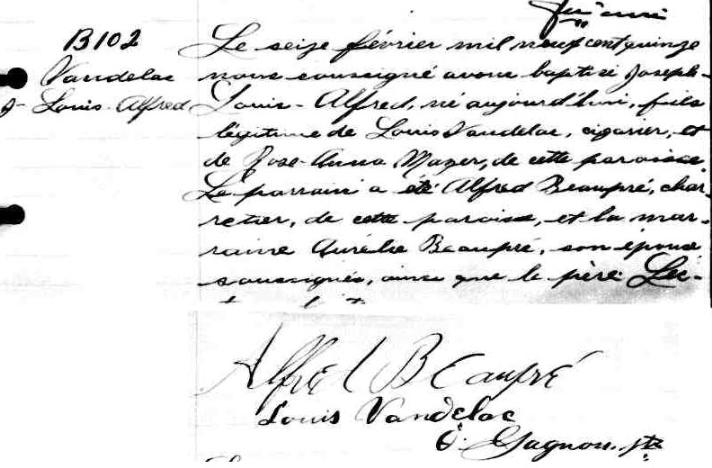 B102
Vandelac
J- Louis-Alfred
Le seize février mil neuf cent quinze
nous soussigné avons baptisé Joseph-
Louis-Alfred, né aujourd'hui, fils
légitime de Louis Vandelac, cigarier, et
de Rose-Anna Mayer, de cette paroisse.
Le parrain a été Alfred Beaupré, char-
retier, de cette paroisse, et la mar-
raine Aurélie Beaupré, son épouse
soussignés, ainsi que le père. Lec-
Alfred Beaupré
Louis Vandelac
O. Gagnon, ptr